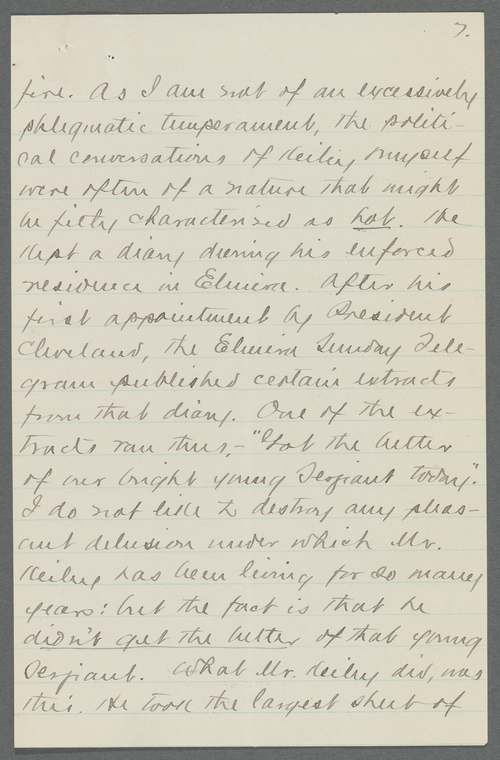 7.
fire. As I am not of an excessively
phlegmatic temperament, the politi-
cal conversations of Keiley & myself
were often of a nature that might
be fitly characterized as hot. He
kept a diary during his enforced
residence in Elmira. After his
first appointment by President
Cleveland, the Elmira Sunday Tele-
gram published certain extracts
from that diary. One of the ex-
tracts ran thus,- "Got the better
of our bright young Sergiant today".
I do not like to destroy any pleas-
ant delusion under which Mr.
Keiley has been living for so many
years: but the fact is that he
didn't get the better of that young
Sergiant. What Mr. Keiley did, was
this. He took the largest sheet of